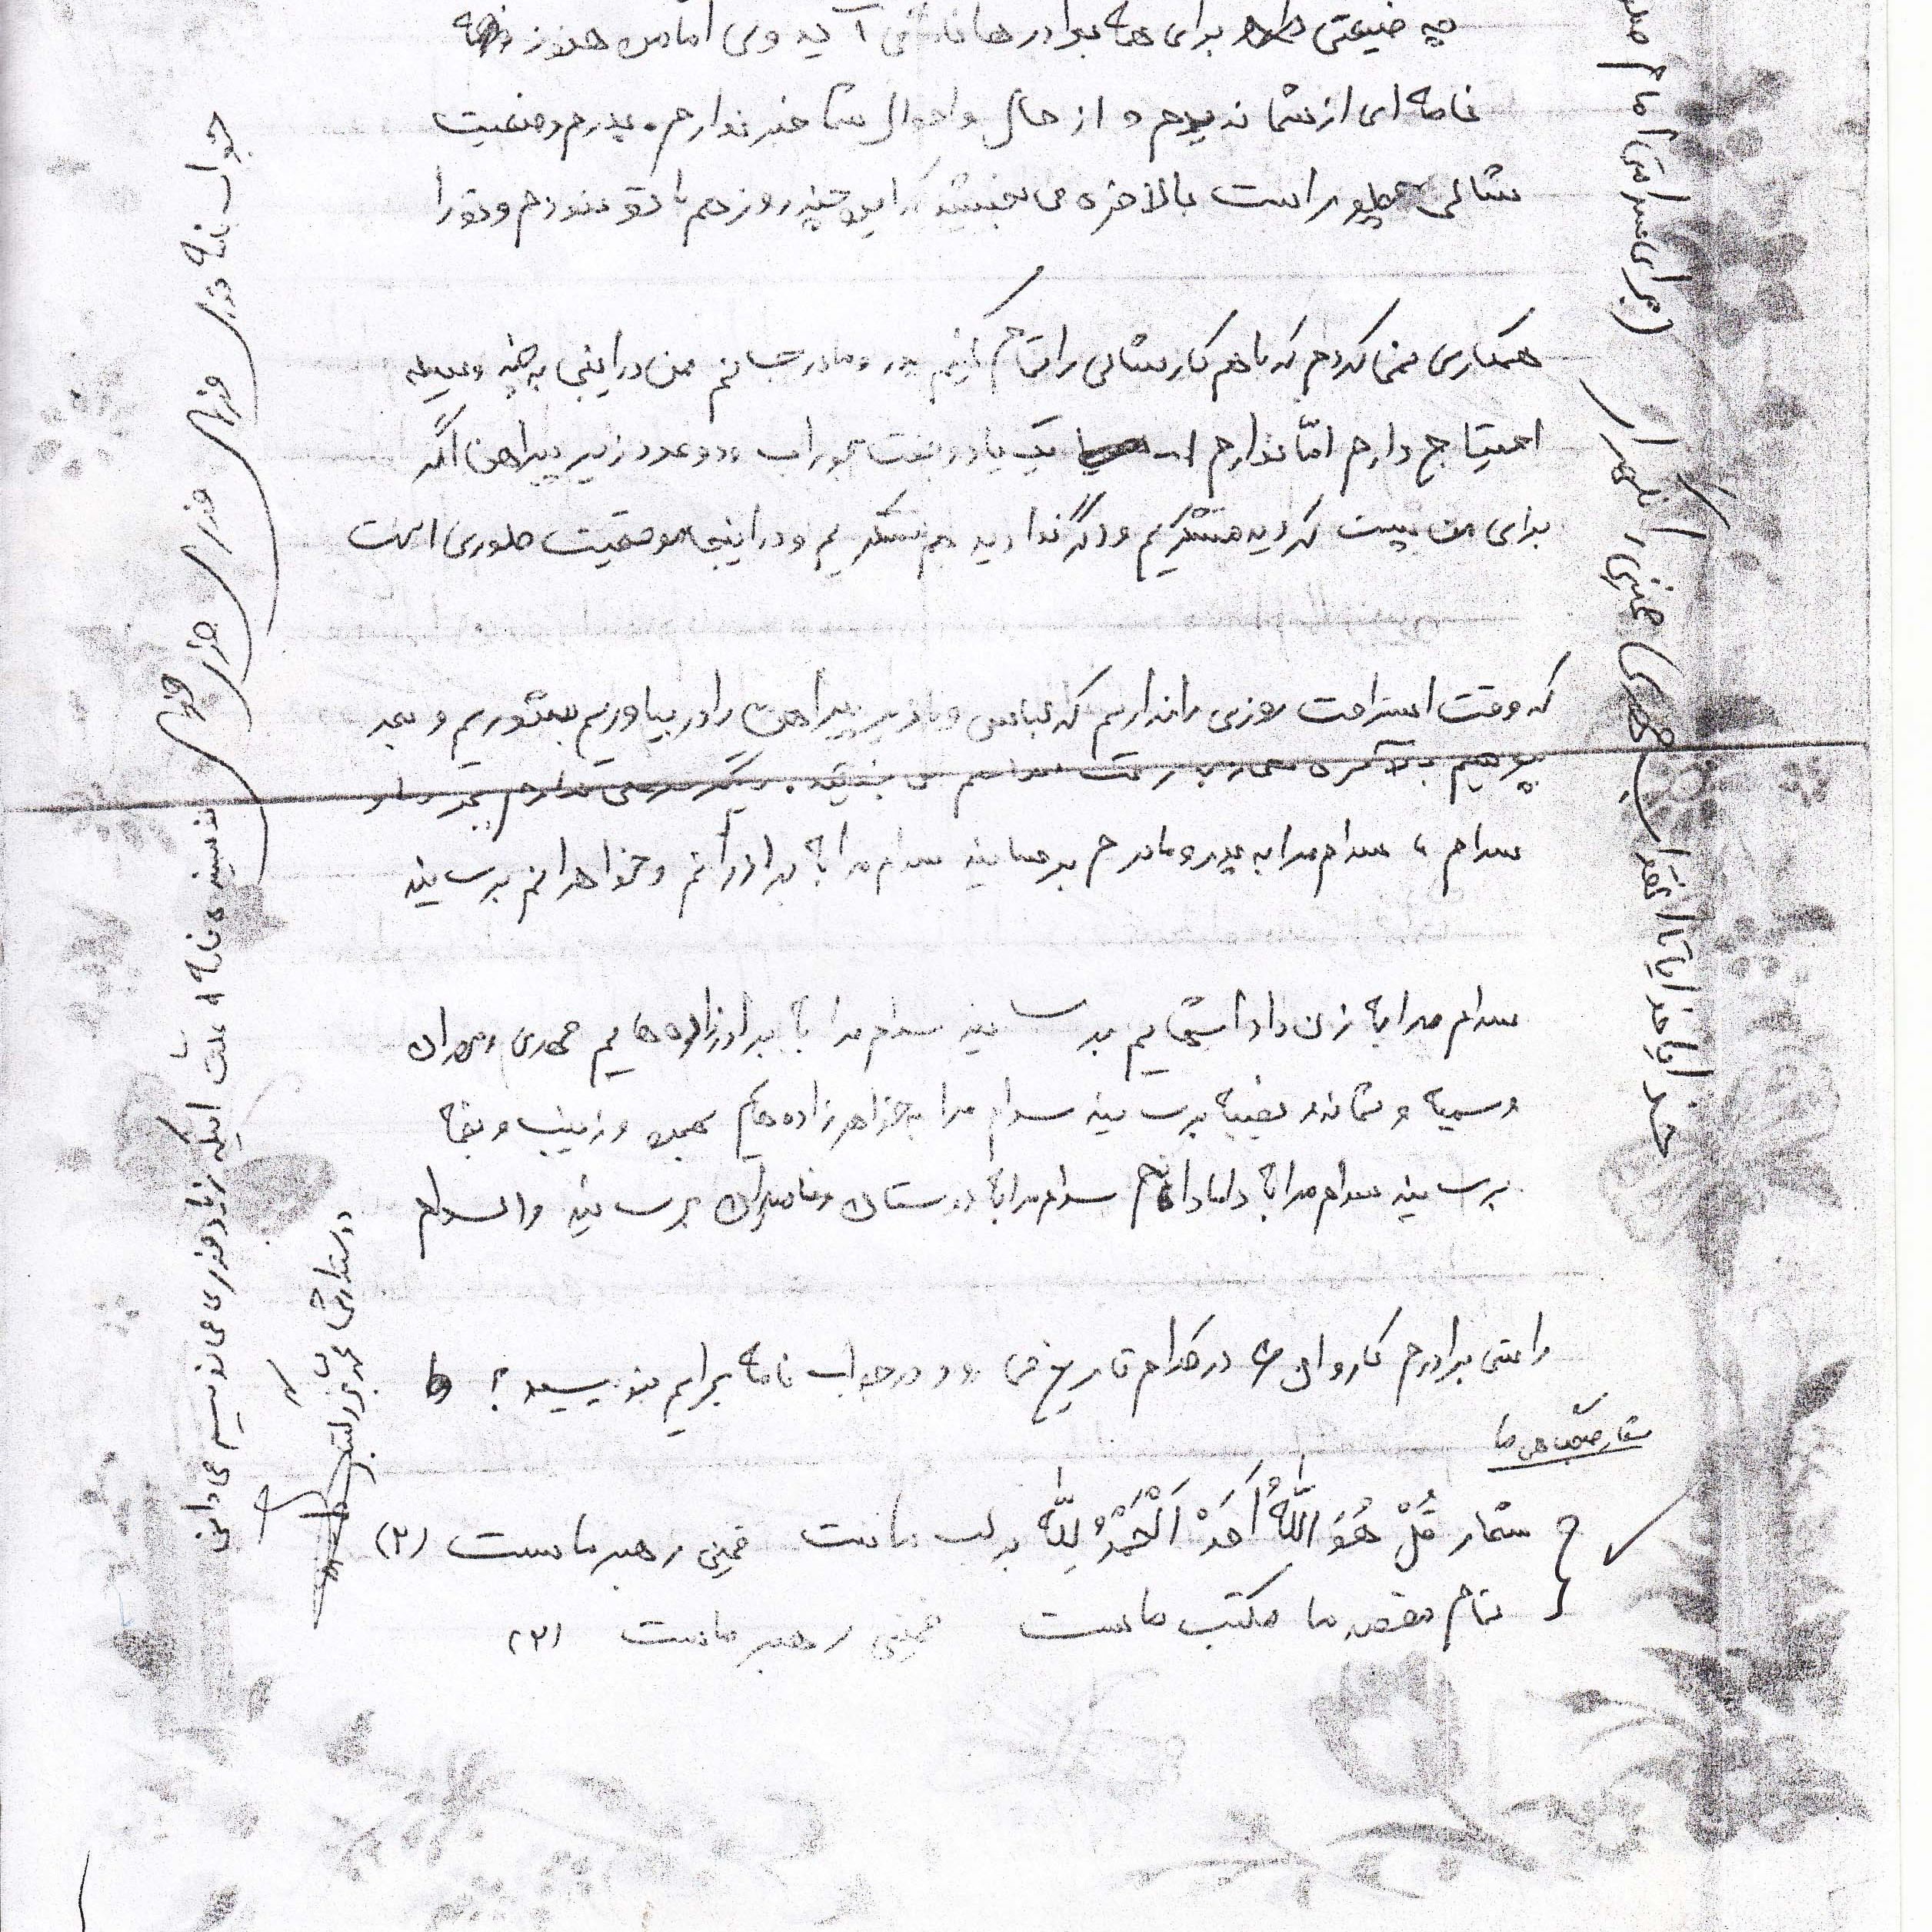 چه ضیعتی برای همه برادرها نامه می آید ولی اما من هنوز
نامه ای از شما ندیدم و از حال و احوال شما خبر ندارم. پدرم وضعیت
شالی چطور است بالاخره می بخشید که این چند روز هم با تو نبودم و تو را
همکاری نمی کردم که با هم کار شالی را تمام کنیم پدر و مادر جانم من در اینجا به چند وسیله
احتیاج دارم اما ندارم یک یا دو جفت جوراب و دو عدد زیر پیراهن اگر
برای من پست کردید متشکریم و اگر ندادید هم متشکریم و در اینجا موقعیت طوری است
که وقت استراحت روزی را نداریم که لباس و یا زیر پیراهن را در بیاوریم بشوریم و بعد
بپوشیم دیگر عرضی ندارم بجز
سلام، سلام مرا به پدر و مادرم برسانید سلام مرا به برادرانم و خواهرانم برسانید
سلام مرا به زن داداشهایم برسانید سلام مرا به برادرزاده هایم مهدی و مهران
و سمیه و برسانید سلام مرا به خواهرزاده هایم و زینب و
برسانید سلام مرا به دامادانم سلام مرا به دوستان و فامیلان برسانید والسلام
راستی برادرم کاروان در کدام تاریخ می رود در جواب نامه برایم بنویسید؟
شعار صبحگاهی ما
شعار قُلْ هُوَ اللَّهُ أَحَدْ اَلْحَمْدُ لِلَّه بر لب ماست خمینی رهبر ماست (۲)
تمام مقصد ما مکتب ماست خمینی رهبر ماست (۲)
خدایا خدایا تا انقلاب مهدی خمینی را نگهدار
(برای سلامتی امام
جواب نامه فوری فوری فوری فوری فوری
نویسنده نامه علت اینکه زیاد فوری می نویسم می دانی